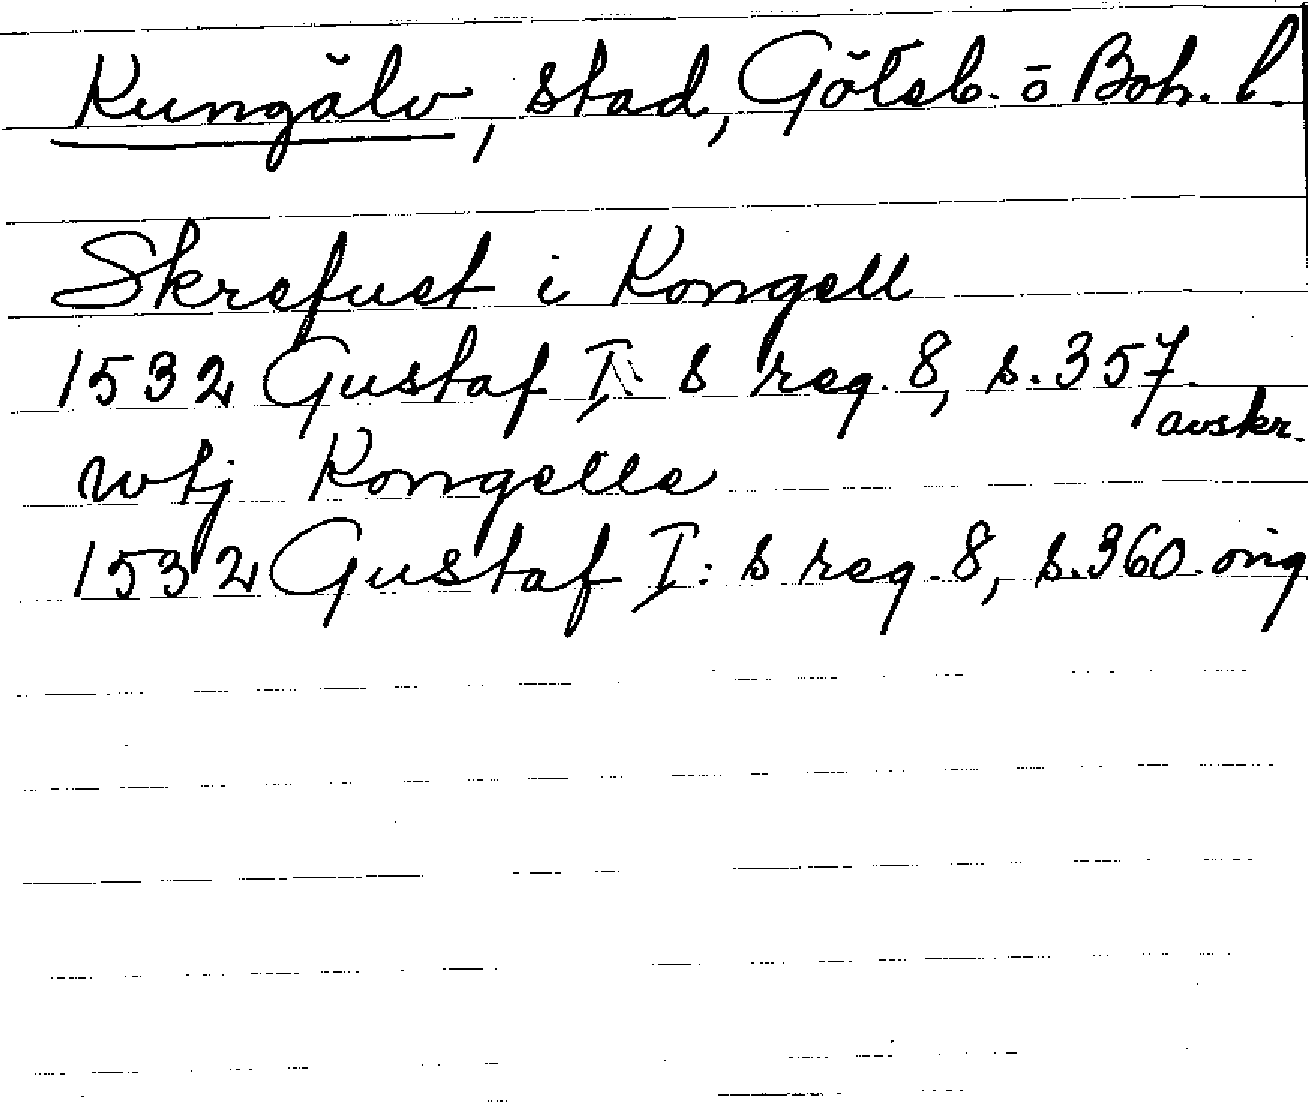 Kungälv, stad, Götsb. o Boh. l.
Skrefuet i Kongell
1532 Gustaf I: s reg. 8, s. 357 avskr.
wtj Kongelle
1532 Gustaf I: s reg. 8, s. 360 orig